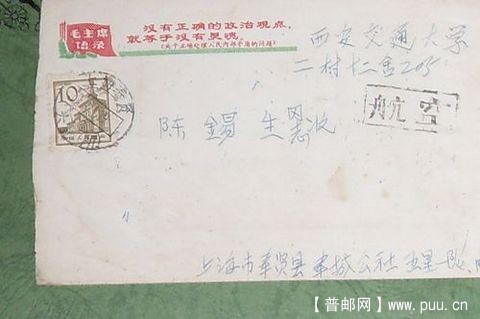 毛主席
语录
没有正确的政治观点，
就等于没有灵魂。
《关于正确处理人民内部矛盾的问题》
西安交通大学
二村十二舍205
10
航空
陈锡生
上海市奉贤县奉城公社五星队
【普邮网】www.puu.cn